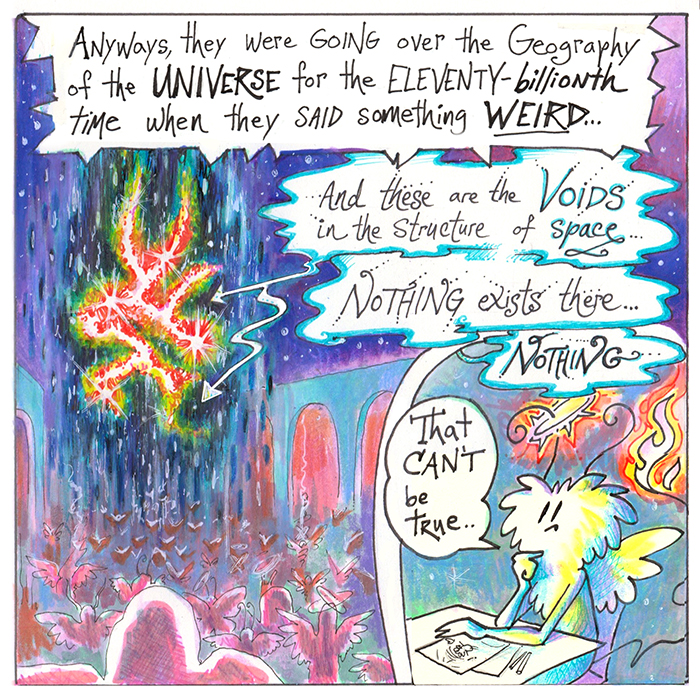 Anyways, they were GOING over the Geography
of the UNIVERSE for the ELEVENTY-billionth
time when they SAID something WEIRD...
And these are the VOIDS
in the structure of space...
NOTHING exists there...
NOTHING
That
CAN'T
be
true..